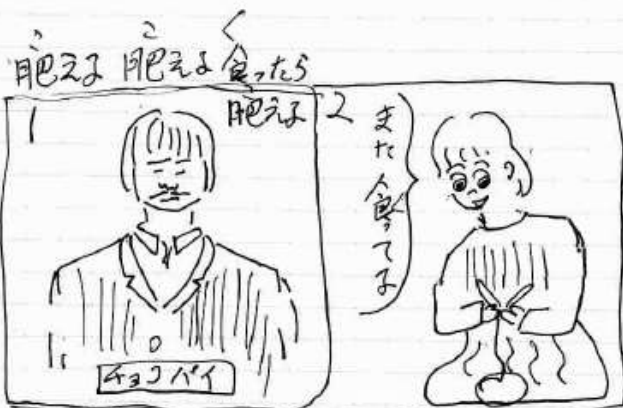 こ こ く
肥える 肥える 食ったら
肥える
1
チョコパイ
2
また食ってる